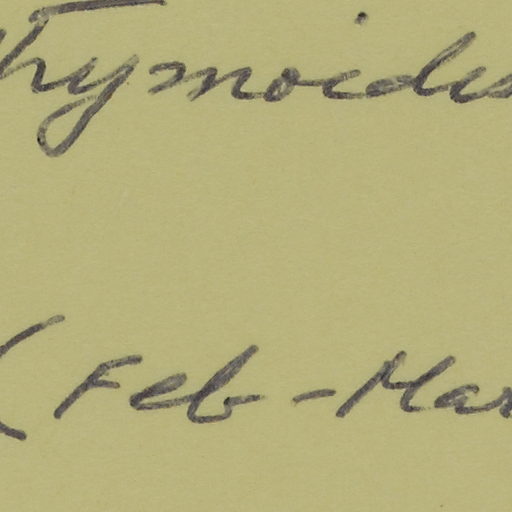 Thymoides
(Feb - Mar